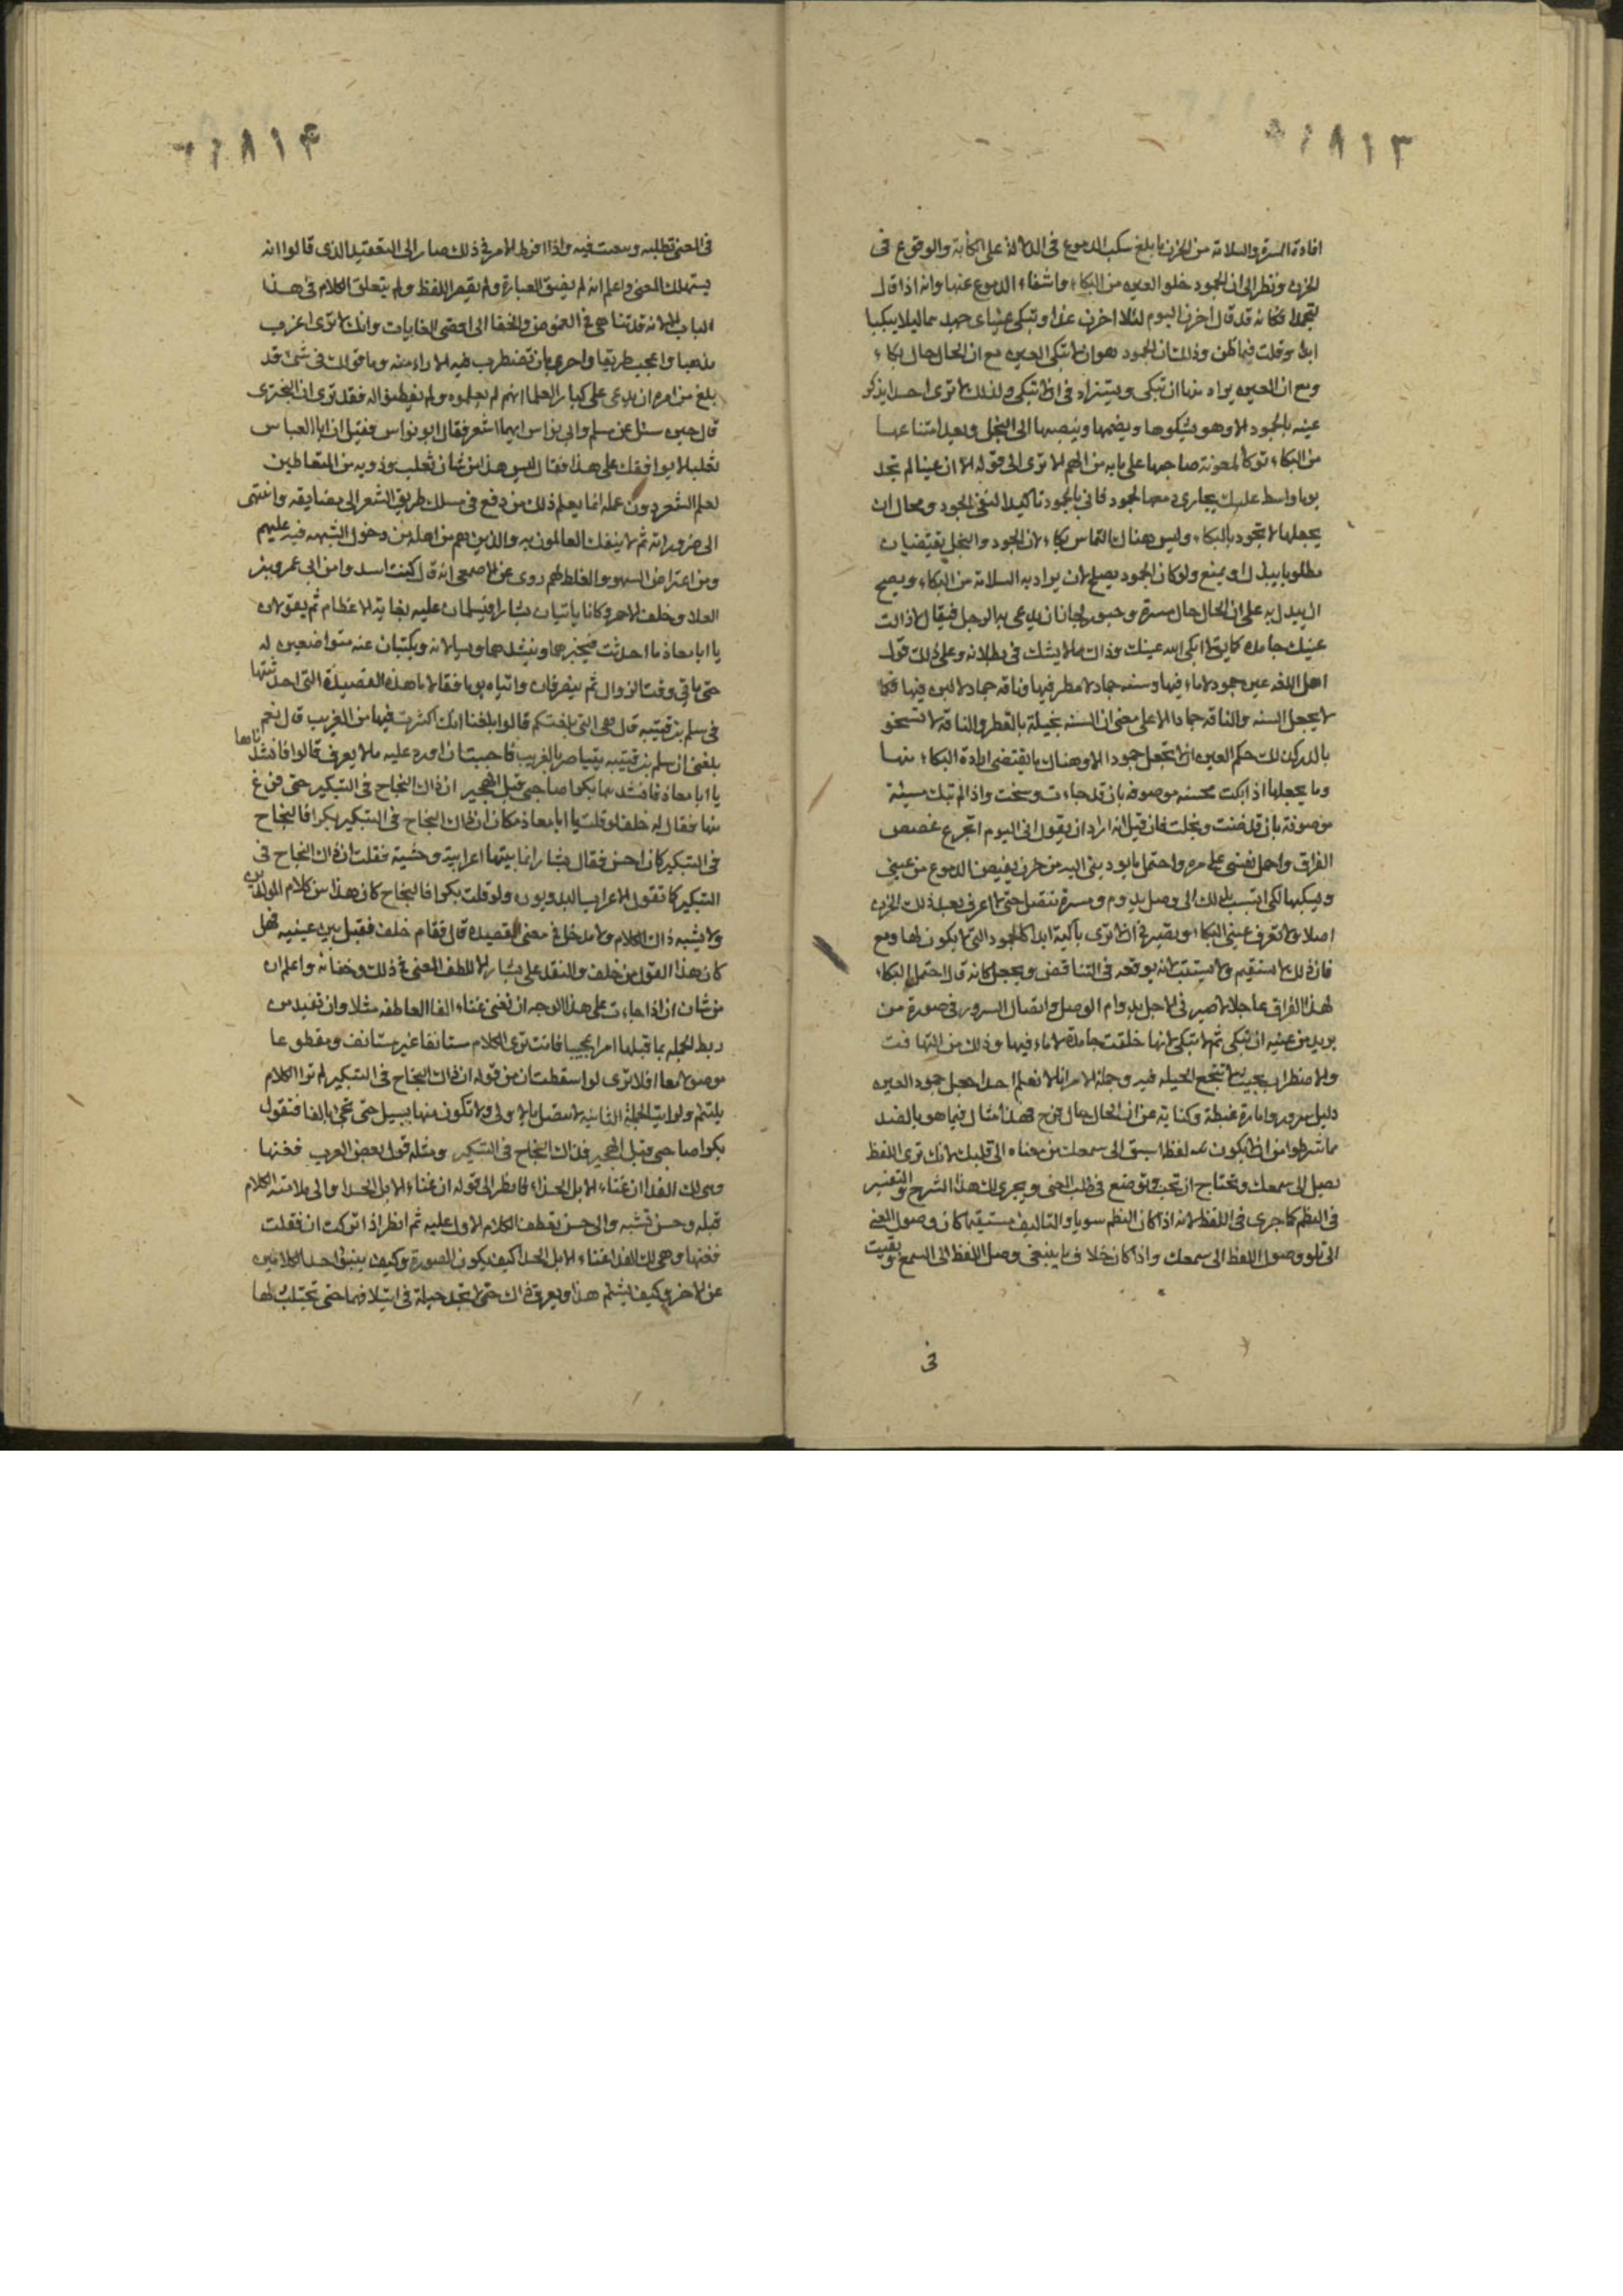 ٦١٨١٣
افادة المسرة والسلامة من الحزن ما بلغ سكب الدموع فى الدلالة على الكآبة والوقوع فى
الحزن ونظر الى ان الجمود خلو العين من البكاء وانتفاء الدموع عنها وانه اذا قال
لتجمدا فكانه قد قال احزن اليوم لئلا احزن غدا وتبكى عيناى جهدهما لئلا يبكيا
ابدا وغلط فيما ظن وذلك ان الجمود هو ان لا تبكى العين مع ان الحال حال بكاء
ومع ان العين يراد منها ان تبكى ويستراب فى ان لا تبكى ولذلك لا ترى احدا يذكر
عينه بالجمود الا وهو يشكوها ويذمها وينسبها الى البخل ويعد امتناعها
من البكاء تركا لمعونة صاحبها على ما به من الهم الا ترى الى قوله الا ان عينا لم تجد
يوم واسط عليك بجارى دمعها لجمود فاتى بالجمود تاكيدا لنفى الجود ومحال ان
يجعلها لا تجود بالبكاء وليس هناك التماس بكاء لان الجود والبخل يقتضيان
مطلوبا يبذل او يمنع ولو كان الجمود يصلح لان يراد به السلامة من البكاء ويصح
ان يدل به على ان الحال حال مسرة وحبور لجاز ان يدعى به للرجل فيقال لا زالت
عينك جامدة كما يقال لا ابكى الله عينك وذاك مما لا يشك فى بطلانه وعلى ذلك قول
اهل اللغه عين جمود لا ماء فيها وسنه جماد لا مطر فيها وناقه جماد لا لبن فيها فكما
لا يجعل السنه والناقه جمادا الا على معنى ان السنه بخيلة بالقطر والناقه لا تسخو
بالدر كذلك حكم العين لا تجعل جمودا الا وهناك ما يقتضى ارادة البكاء منها
وما يجعلها اذا بكت محسنه موصوفه بان قد جاءت وسخت واذا لم تبك مسيئة
موصوفة بان قد ضنت وبخلت فان قيل انه اراد ان يقول انى اليوم اتجرع غصص
الفراق واحمل نفسى على مره واحتمل ما يود بنى اليه من حزن يفيض الدموع من عينى
ويسكبها لكى اتسبب بذلك الى وصل يدوم ومسرة تتصل حتى لا اعرف بعد ذلك الحزن
اصلا ولا تعرف عينى البكاء وتصير فى ان لا ترى باكية ابدا كالجمود التى لا يكون لها دمع
فان ذلك لا يستقيم ولا يستتب لانه يوقعه فى التناقض ويجعل كانه قال احتمل البكاء
لهذا الفراق عاجلا لاصير فى الاجل بدوام الوصل واتصال السرور فى صورة من
يريد من عينه ان تبكى ثم لا تبكى لانها خلقت جامدة لا ماء فيها وذلك من التهافت
والاضطراب بحيث لا تنجع الحيله فيه وجملة الامر انا لا نعلم احدا جعل جمود العين
دليل سرور وامارة غبطة وكناية عن ان الحال حال فرح فهذا مثال فيما هو بالضد
مما شرطوا من ان لا يكون لفظه اسبق الى سمعك من معناه الى قلبك لانك ترى اللفظ
يصل الى سمعك وتحتاج ان تخب وتوضع فى طلب المعنى ويجرى لك هذا الشرح والتفسير
فى النظم كما جرى فى اللفظ لانه اذا كان النظم سويا والتاليف مستقيما كان وصول المعنى
الى قلبك تلو وصول اللفظ الى سمعك واذا كان خلاف ما ينبغى وصل اللفظ الى السمع وبقيت
فى
٦١٨١٤
فى المعنى تطلبه وتتعب فيه واذا افرط الامر فى ذلك صار الى التعقيد الذى قالوا انه
يستهلك المعنى واعلم انه لم يضق العبارة ولم يقصر اللفظ ولم ينغلق الكلام فى هذا
الباب الا لانه قد تناهى فى الغموض والخفا الى اقصى الغايات وانك لا ترى اغرب
مذهبا واعجب طريقا واحرى بان تضطرب فيه الاراء منه وما قولك فى شئ قد
بلغ من امره ان يدعى على كبار العلما انهم لم يعلموه ولم يفطنوا له فقد ترى ان البحترى
قال حين سئل عن مسلم وابى نواس ايهما اشعر فقال ابو نواس فقيل ان ابا العباس
ثعلبا لا يوافقك على هذا فقال ليس هذا من شان ثعلب وذويه من المتعاطين
لعلم الشعر دون عمله انما يعلم ذلك من دفع فى مسلك طريق الشعر الى مضايقه وانتهى
الى ضروراته ثم لا ينفك العالمون به والذين هم من اهله من دخول الشبهه فيه عليهم
ومن اعتراض السهو والغلط لهم روى عن الاصمعى انه قال كنت اسير وامن ابى عمرو بن
العلا وخلف الاحمر وكانا ياتيان بشارا فيسلمان عليه بغاية الاعظام ثم يقولان
يا ابا معاذ ما احدثت فيخبرهما وينشدهما ويسالانه ويكتبان عنه متواضعين له
حتى ياتى وقت الزوال ثم ينصرفان واتياه يوما فقالا ما هذه القصيدة التى احدثتها
فى سلم بن قتيبه قال هى التى بلغتكم قالوا بلغنا انك اكثرت فيها من الغريب قال نعم
بلغنى ان سلم بن قتيبه يتباصر بالغريب فاحببت ان اورد عليه ما لا يعرف قالوا فانشدناها
يا ابا معاذ فانشدهما بكرا صاحبى قبل الهجير ان ذاك النجاح فى التبكير حتى فرغ
منها فقال له خلف لو قلت يا ابا معاذ مكان ان ذاك النجاح فى التبكير بكرا فالنجاح
فى التبكير كان احسن فقال بشار انما بنيتها اعرابية وحشية فقلت ان ذاك النجاح فى
التبكير كما تقول الاعراب البدويون ولو قلت بكرا فالنجاح كان هذا من كلام المولدين
ولا يشبه ذاك الكلام ولا مدخل فى معنى القصيدة قال فقام خلف فقبل بين عينيه فهل
كان هذا القول من خلف والنقد على بشار الا للطف المعنى فى ذلك وخفائه واعلم ان
من شان ان اذا جاءت على هذا الوجه ان تغنى غناء الفا العاطفه مثلا وان تفيد من
ربط الجمله بما قبلها امرا عجيبا فانت ترى الكلام مستانفا غير مستانف ومقطوعا
موصولا معا افلا ترى لو اسقطت ان من قوله ان ذاك النجاح فى التبكير لم تر الكلام
يلتئم ولرايت الجملة الثانيه لا تتصل بالاولى ولا تكون منها بسبيل حتى تجئ بالفا فتقول
بكرا صاحبى قبل الهجير فذاك النجاح فى التبكير ومثله قول بعض العرب فغنها
وهى لك الفدا ان غناء الابل الحداء فانظر الى قوله ان غناء الابل الحدا والى ملائمته الكلام
قبله وحسن تشبثه والى حسن تعطف الكلام الاول عليه ثم انظر اذا تركت ان فقلت
فغنها وهى لك الفدا غناء الابل الحدا كيف يكون الصورة وكيف ينبو احد الكلامين
عن الاخر وكيف يشئم هذا ويعرق ذاك حتى لا تجد حيلة فى ائتلافهما حتى تجتلب لها